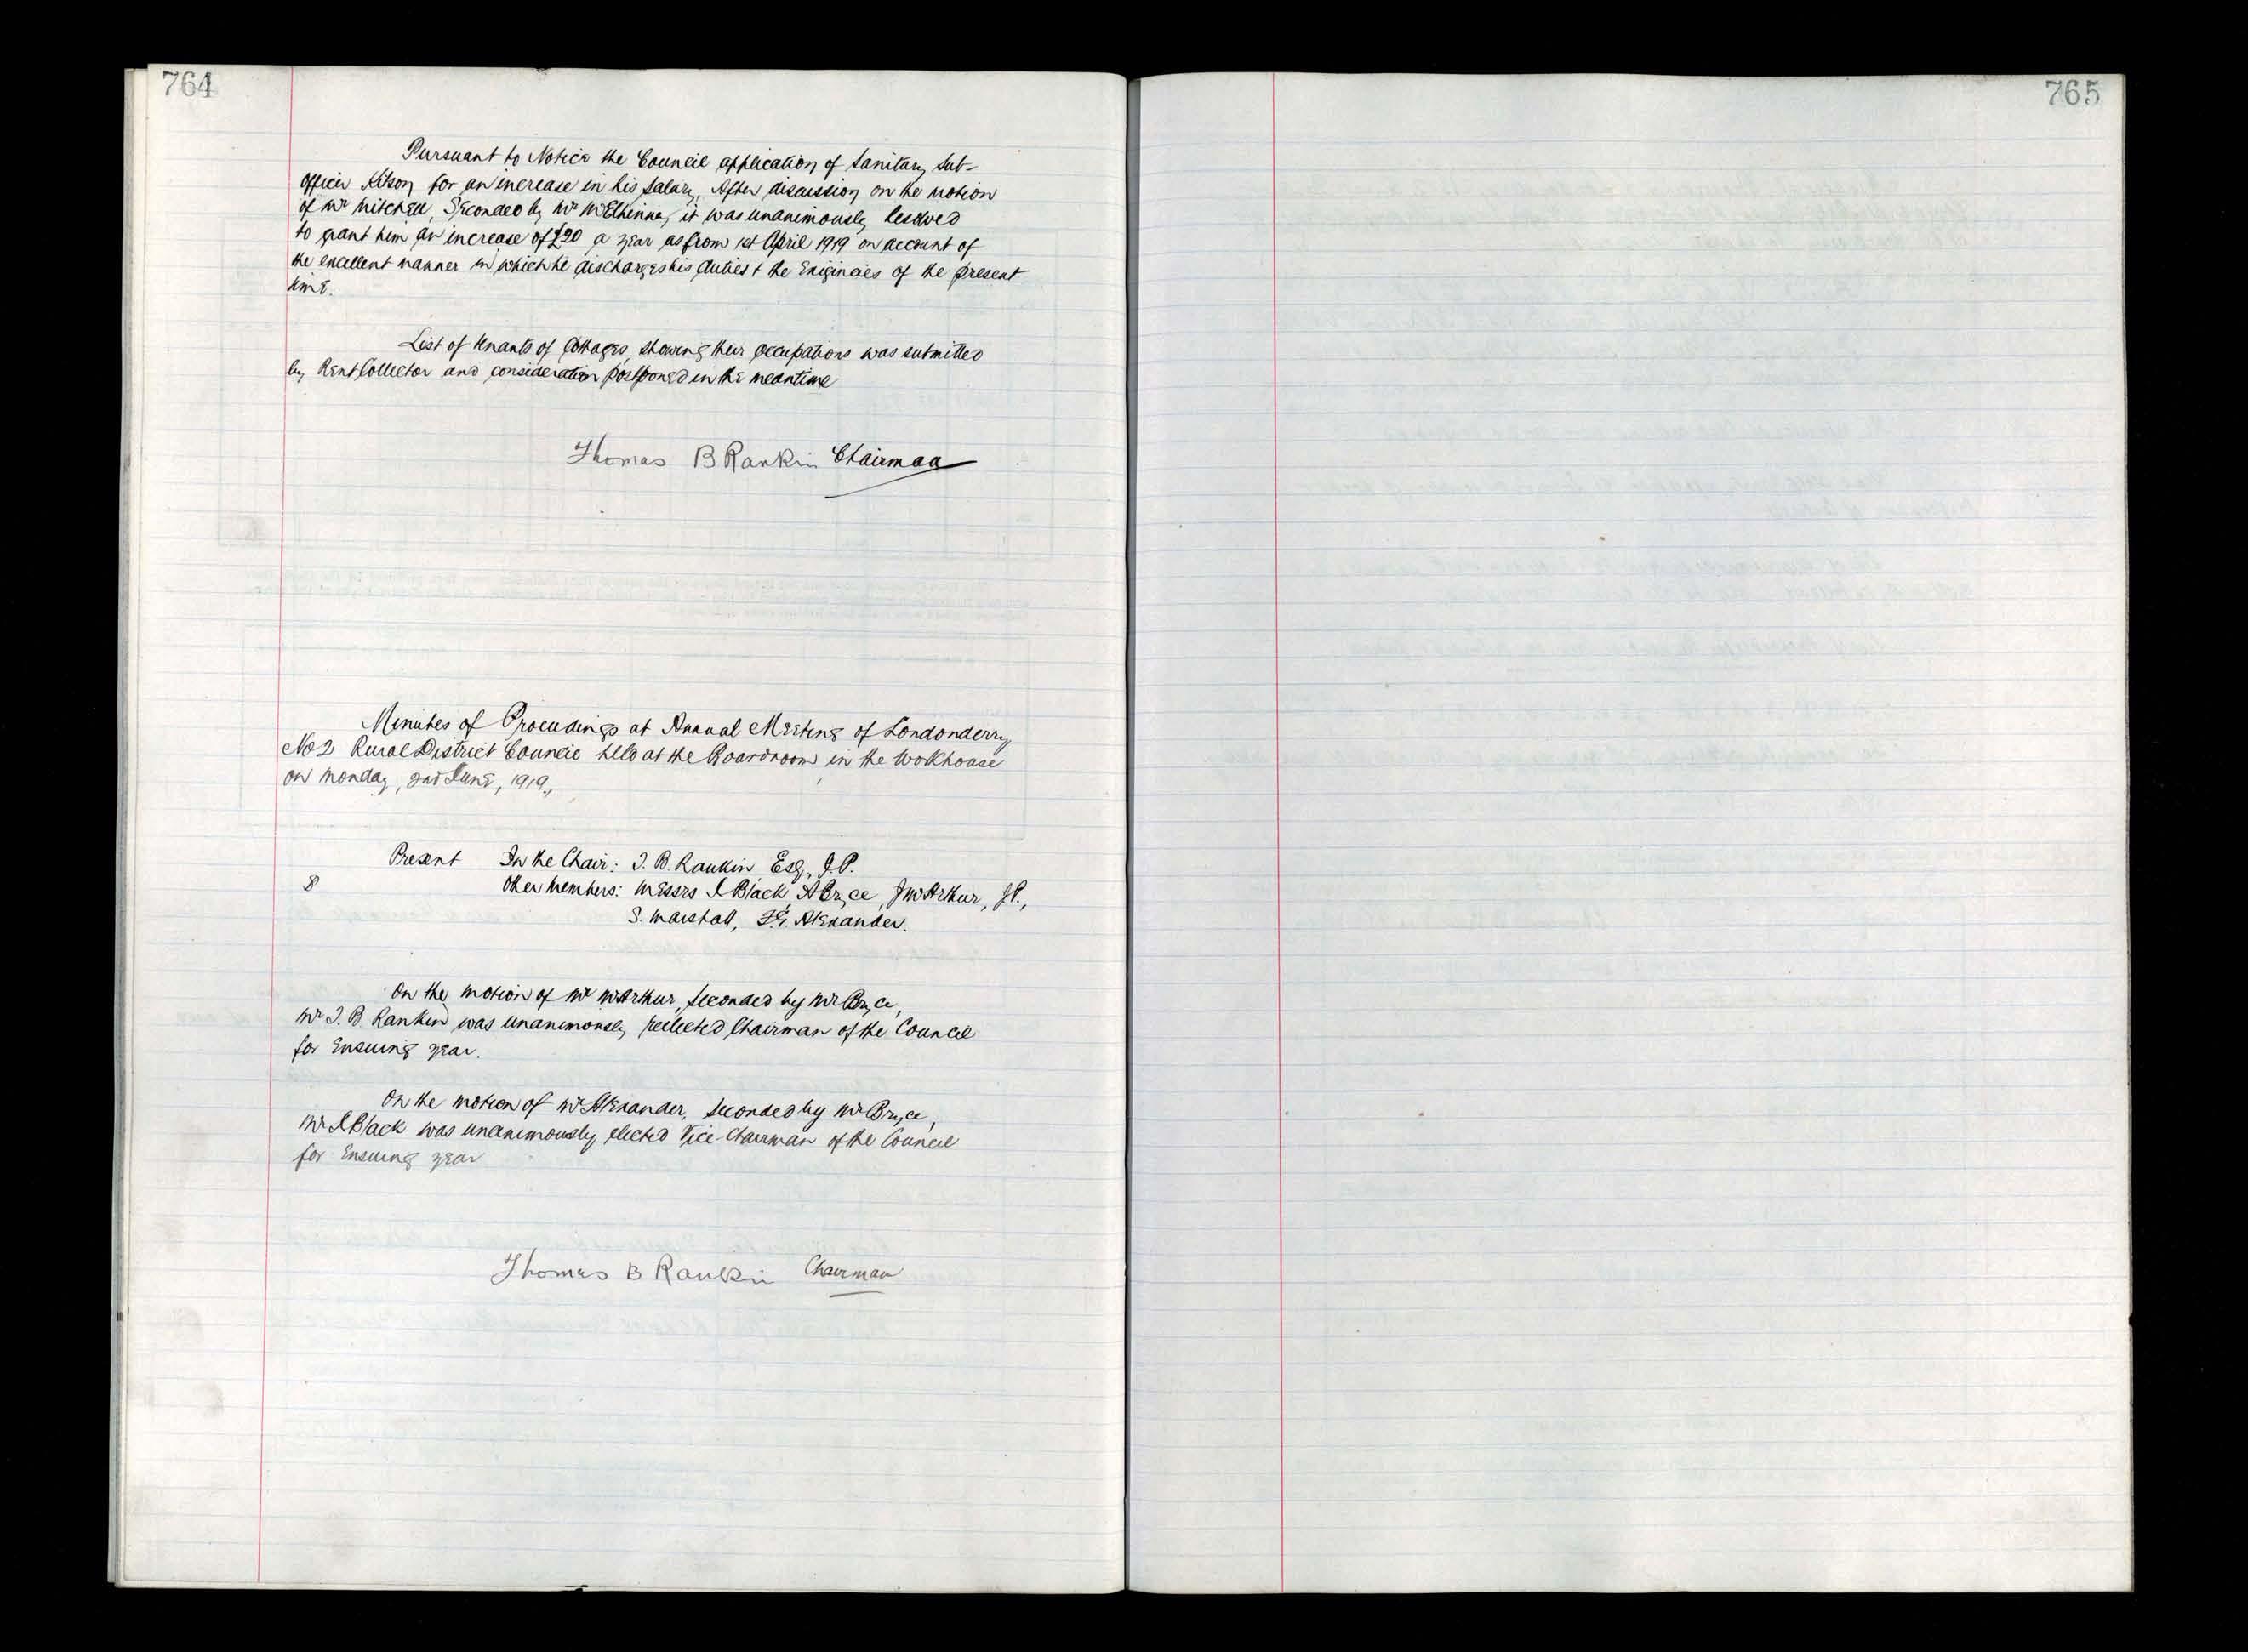 764
Pursuant to Notice the Council application of Sanitary Sub-
Officer for an increase in his salary. After discussion on the motion
of Mr Mitchell, Seconded by Mr McElhinney, it was unanimously Resolved
to grant him an increase of £20 a year as from 1st April 1919 on account of
the excellent manner in which he discharges his duties + the Exigincies of the present
time.
List of tenants of Cottages, showing their occupations was submitted
by Rent Collector and consideration postponed in the meantime
Thomas B Rankin Chairman
Minutes of Proceedings at Annual Meeting of Londonderry
No 2 Rural District Council held at the Boardroom in the Workhouse
on Monday, 2nd June, 1919.,
Present In the Chair: T. B. Rankin Esq, J.P.
8 Other Members: Messrs Black, A Bryce, J McArthur, JP.,
S. Marshall, Alexander.
On the motion of Mr McArthur, seconded by Mr Bryce,
Mr T. B. Rankin was unanimously reelected Chairman of the Council
for Ensuing year.
On the motion of Mr Alexander, seconded by Mr Bryce,
Mr Black was unanimously elected Vice-Chairman of the Council
for Ensuing year
Thomas B Rankin Chairman
765